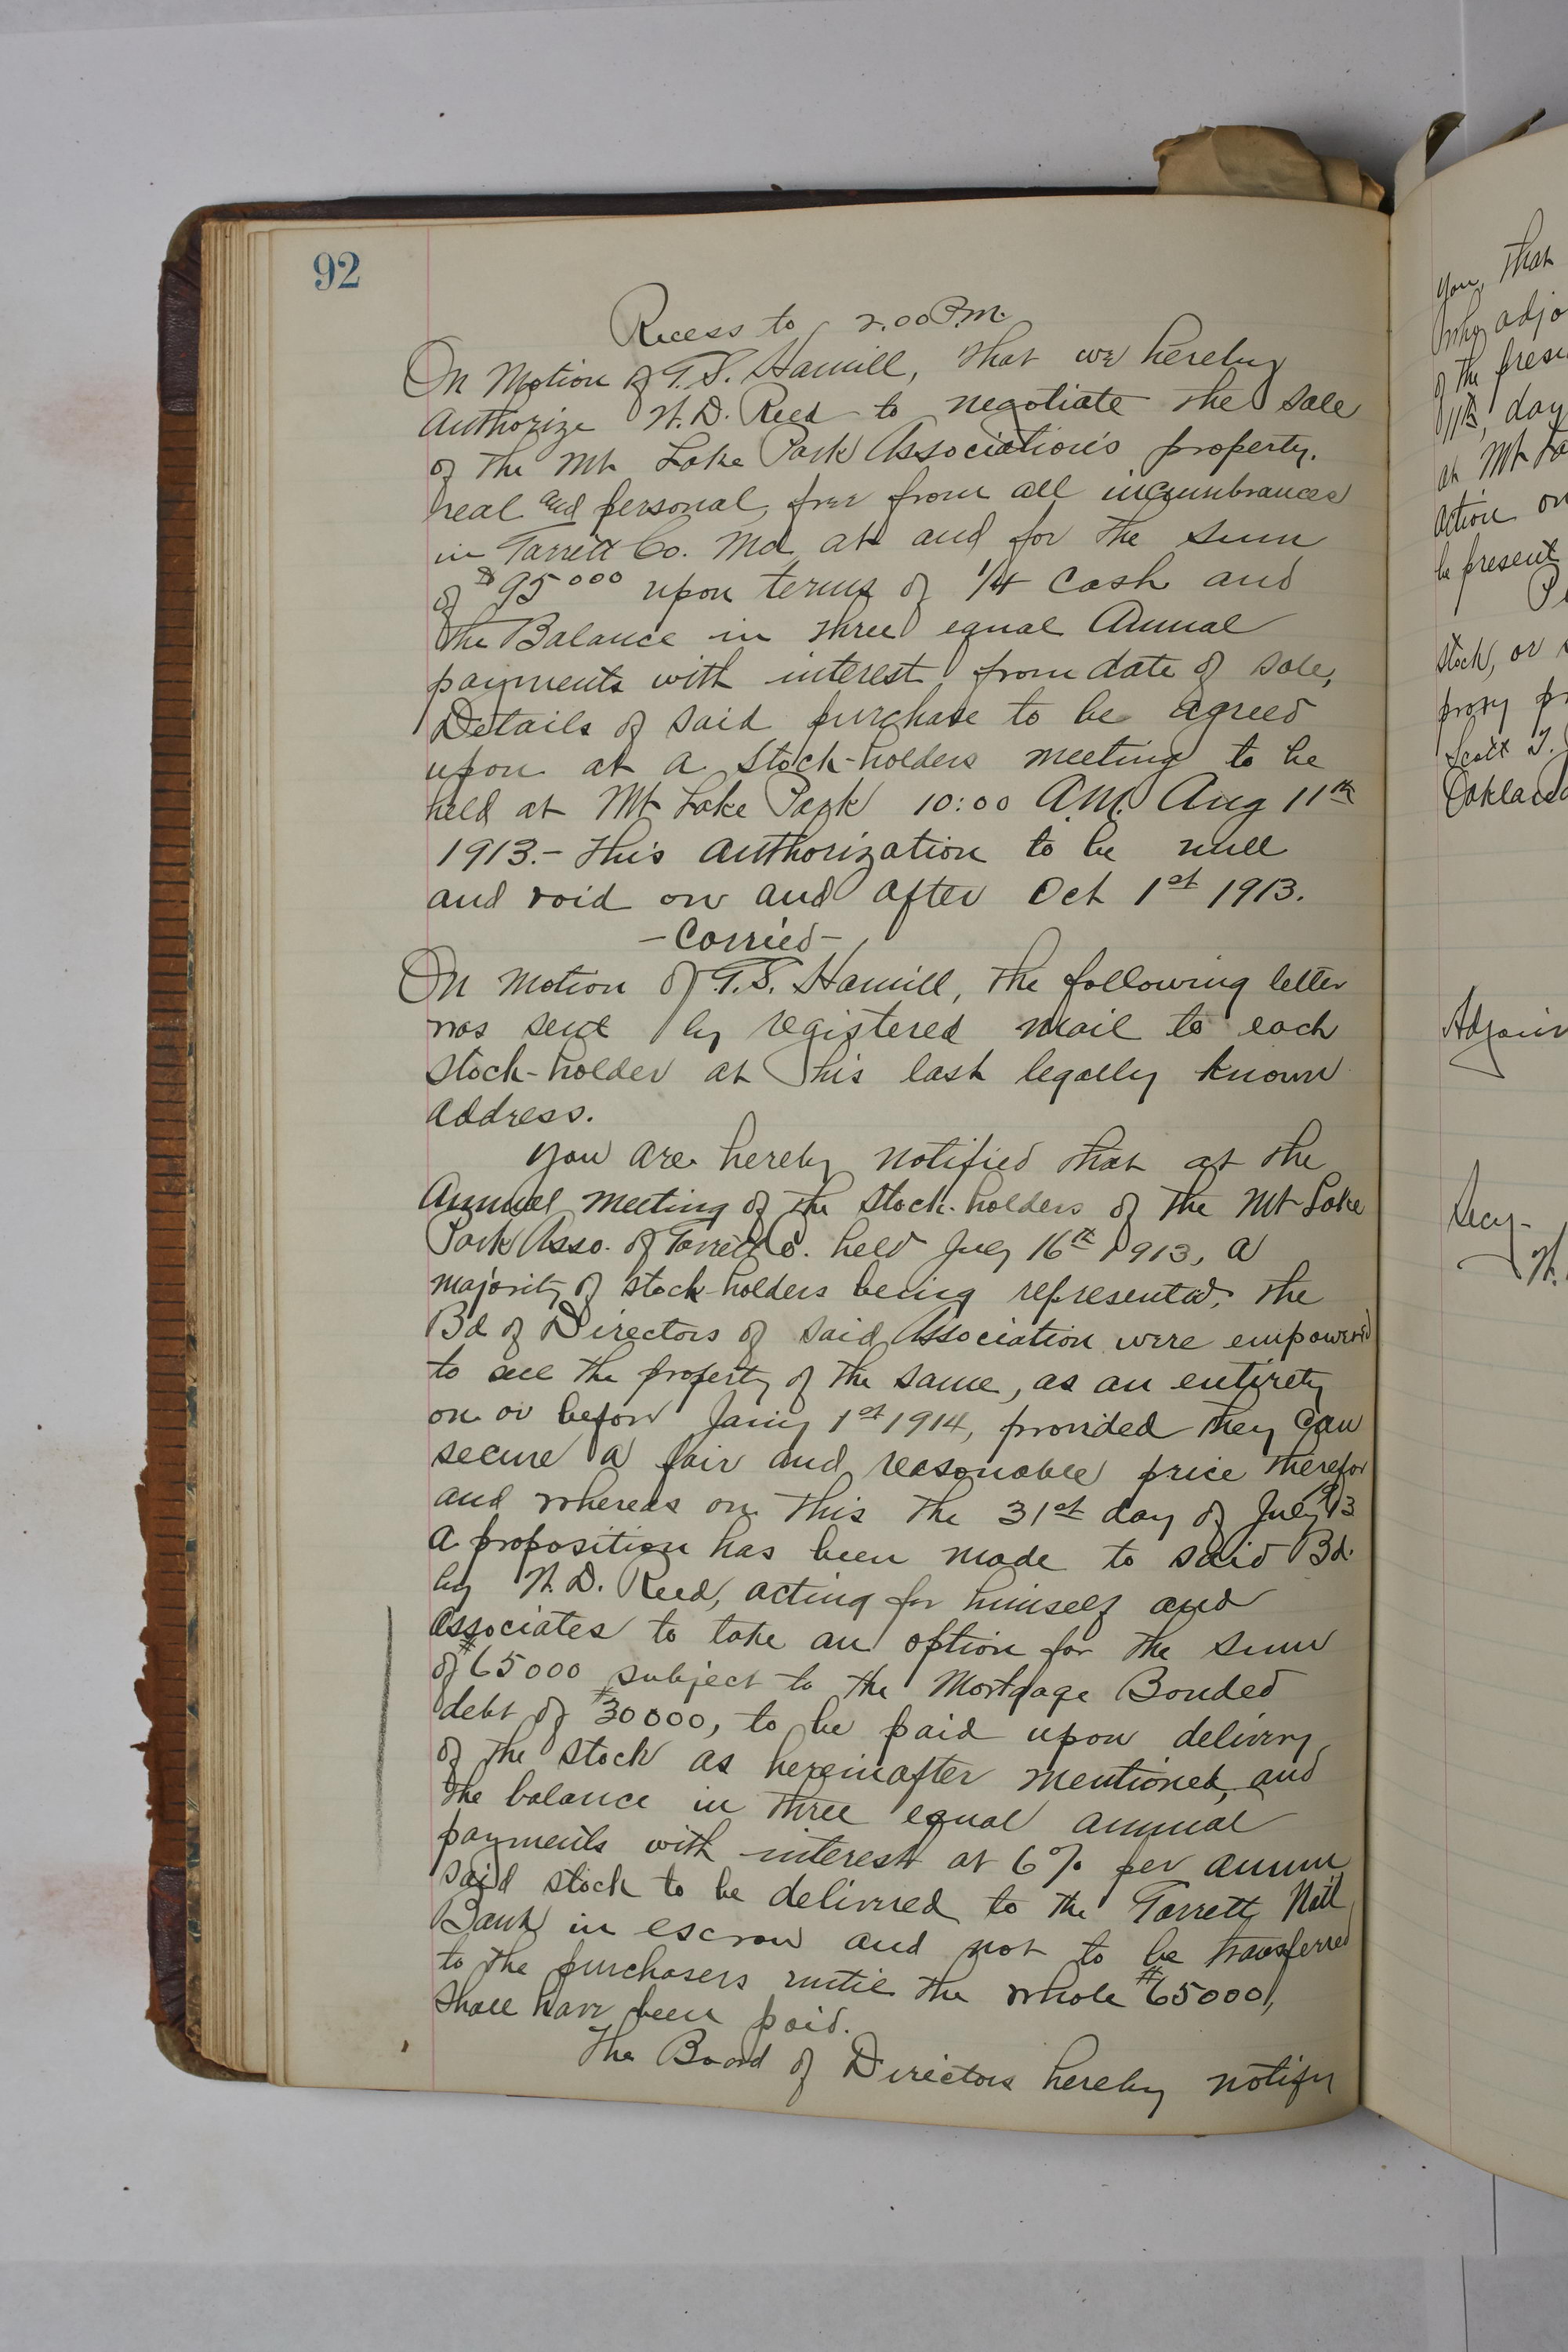 92
Recess to 2.00 P.M.
On Motion of G.S. Hamill, that we hereby
authorize W.D. Reed to negotiate the sale
of the Mt Lake Park Association's property,
real and personal, free from all incumbrances
in Garrett Co. Md at and for the sum
of $95000 upon terms of 1/4 Cash and
the Balance in three equal Annual
payments with interest from date of sale,
Details of said purchase to be agreed
upon at a Stock-holders meeting to be
held at Mt Lake Park 10:00 A.M. Aug 11th
1913.- This authorization to be null
and void on and after Oct 1st 1913.
-Carried-
On motion of G.S. Hamill, the following letter
was sent by registered mail to each
stock-holder at his last legally known
address.
You are hereby notified that at the
Annual meeting of the Stock-holders of the Mt Lake
Park Asso. of Garrett Co. held July 16th 1913, a
majority of stock-holders being represented, the
Bd of Directors of said Association were empowered
to sell the property of the same, as an entirety
on or before Jan'y 1st 1914, provided they can
secure a fair and reasonable price therefor
and whereas on this the 31st day of July 1913
a proposition has been made to said Bd.
by W.D. Reed, acting for himself and
associates to take an option for the sum
of #65000 subject to the Mortgage Bonded
debt of #30000, to be paid upon delivery
of the stock as hereinafter mentioned, and
the balance in three equal annual
payments with interest at 6% per annum
said stock to be delivered to the Garrett Natl
Bank in escrow and not to be transferred
to the purchasers until the whole #65000,
shall have been paid.
The Board of Directors hereby notify
you, that
adjo
of the prese
11th, day
at Mt La
action on
be present
stock, or
proxy
Scott T.
Oakland
Adjour
Secy-